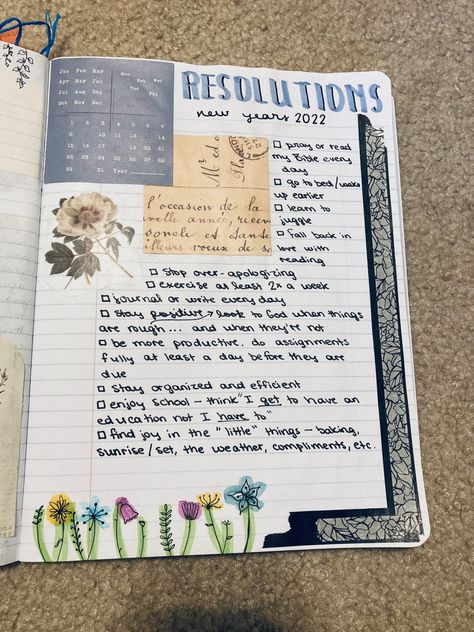 Jan Feb Mar
Apr May Jun
Jul Aug Sep
Oct Nov Dec
Mon
Tue
Feb Wed
Fri
Year
RESOLUTIONS
new years 2022
l'occasion de la
velle année, recev
soncle et Sante
illeurs voeux de
□ pray or read
my Bible every
day
□ go to bed/wake
up earlier
□ learn to
juggle
□ fall back in
love with
reading
□ stop over-apologizing
□ exercise at least 2x a week
□ journal or write every day
□ Stay positive → look to God when things
are rough... and when they're not
□ be more productive. do assignments
fully at least a day before they are
due
□ stay organized and efficient
□ enjoy school - think "I get to have an
education not I have to"
□ find joy in the "little" things - baking,
sunrise/set, the weather, compliments, etc.